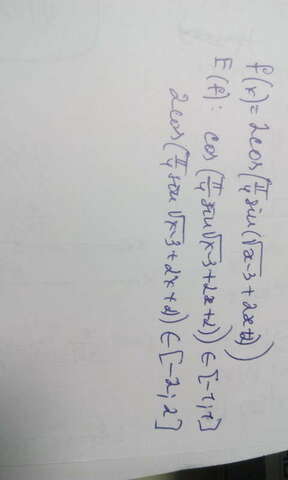 f(x) = 2cos(π/4 sin(√x-3 + 2x+2))
E(f): cos(π/4 sin√x-3 + 2x+2)) ∈ [-1; 1]
2cos(π/4 sin√x-3 + 2x+2) ∈ [-2; 2]